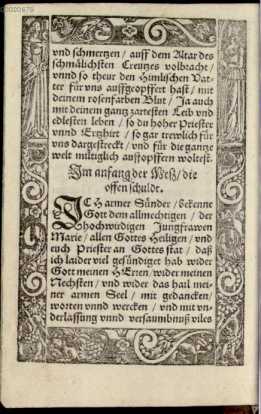 vnd schmertzen / auff dem Altar des
schmählichsten Creutzes volbracht /
vnnd so theur den Himlischen Vat-
ter für vns auffgeopffert hast / mit
deinem rosenfarben Blut / Ja auch
mit deinem gantz zartesten Leib vnd
edlesten leben / so du hoher Priester
vnnd Ertzhirt / so gar trewlich für
vns dargestreckt / vnd für die gantze
welt miltiglich auffopffern woltest.
Im anfang der Meß / die
offen schuldt.
JCH armer Sünder / bekenne
Gott dem allmechtigen / der
hochwürdigen Jungfrawen
Marie / allen Gottes Heiligen / vnd
euch Priester an Gottes stat / daß
ich laider viel gesündiget hab wider
Gott meinen HErren / wider meinen
Nechsten / vnd wider das hail mei-
ner armen Seel / mit gedancken /
worten vnnd wercken / vnd mit vn-
derlassung vnnd versaumbnuß viles